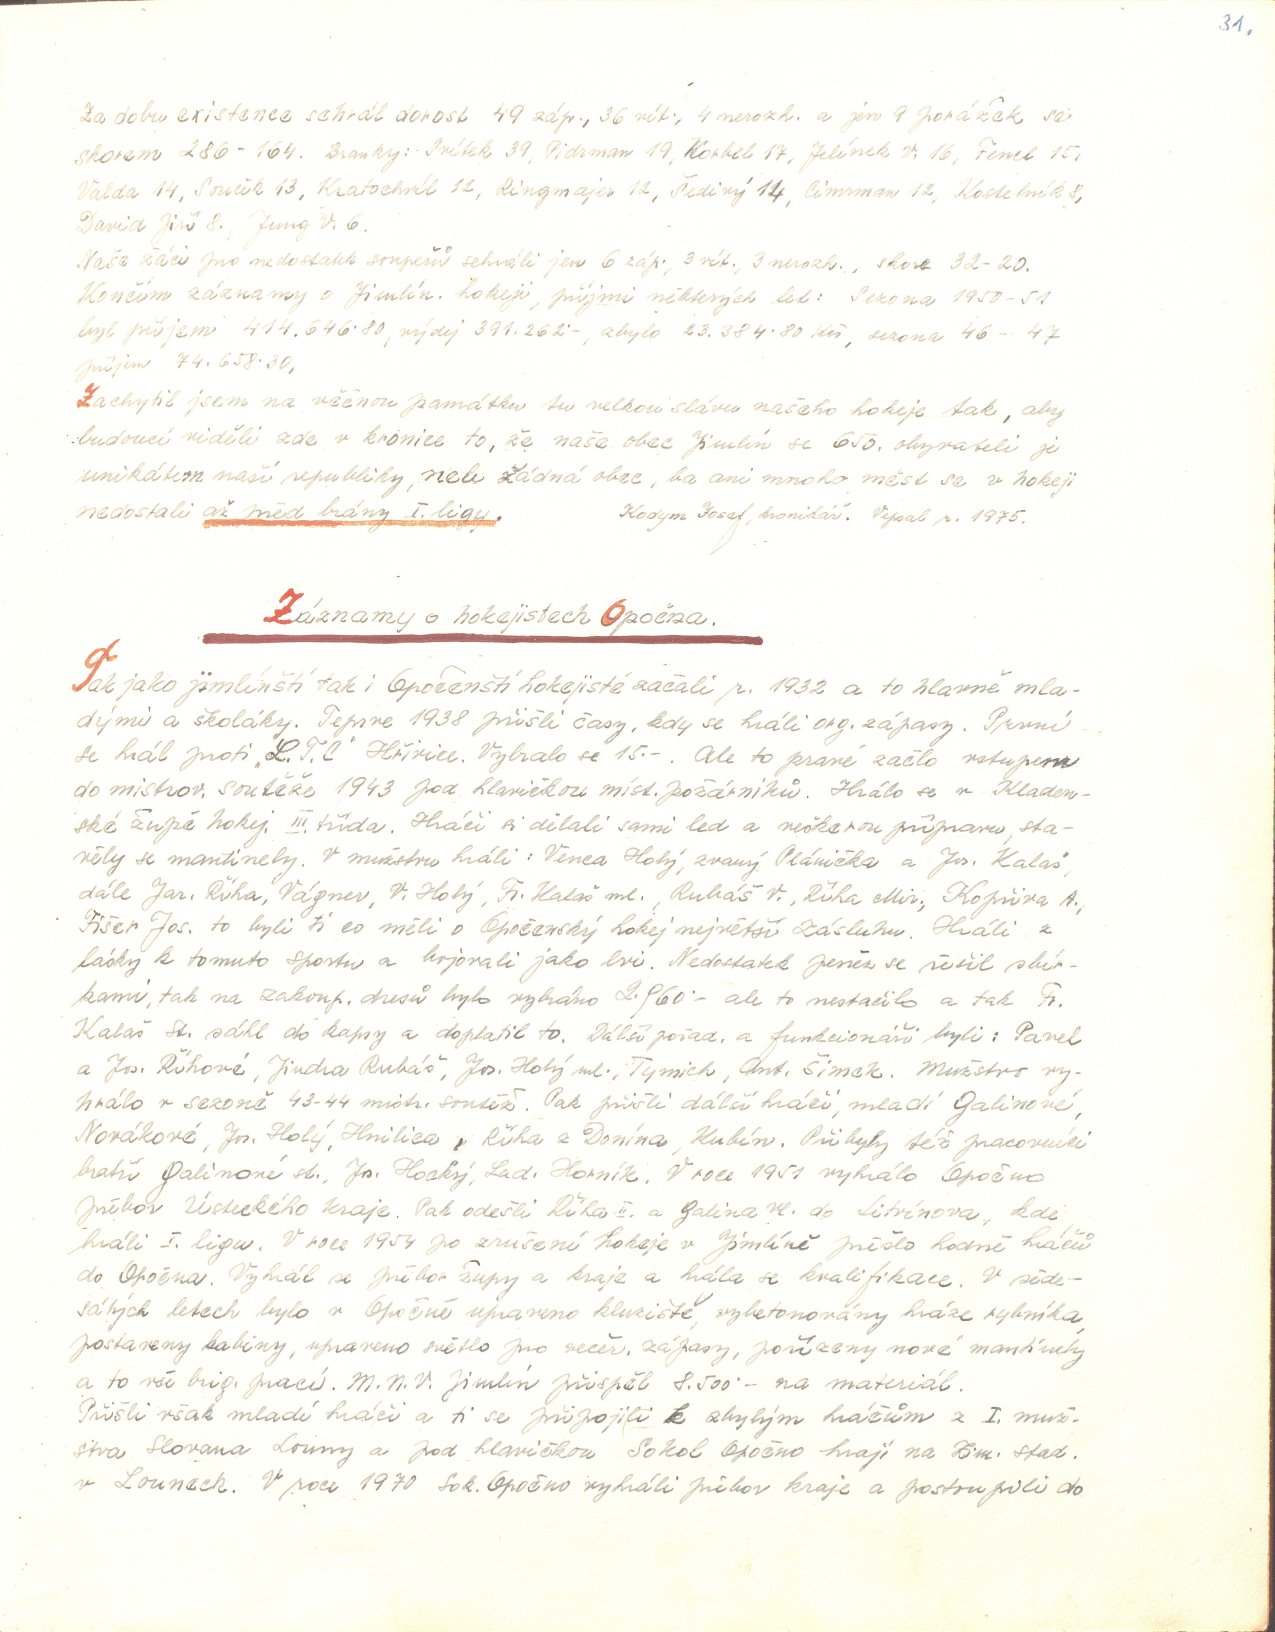 31.
Za dobu existence sehrál dorost 49 záp., 36 vít., 4 nerozh. a jen 9 porážek se
skorem 286 - 164. Branky: - Svítek 39, Pidrman 19, Korbel 17, Jelínek V. 16, Fencl 15,
Valda 14, Souček 13, Kratochvíl 12, Ringmajer 12, Šedivý 14, Cimrman 12, Kostelník 8,
David Jiří 8., Jung V. 6.
Naše žáci pro nedostatek soupeřů sehráli jen 6 záp., 3 vít., 3 nerozh., skore 32-20.
Končím záznamy o Jimlín. hokeji, příjmi některých let: Sezona 1950-51
byl příjem 414.646.80, výdej 391.262.-, zbylo 23.384.80 Kčs, sezona 46 - 47
příjem 74.658.30,
Zachytil jsem na věčnou památku tu velkou slávu našeho hokeje tak, aby
budoucí viděli zde v kronice to, že naše obec Jimlín se 650. obyvateli je
unikátem naší republiky, neb žádná obec, ba ani mnoho měst se v hokeji
nedostali až před brány I. ligy. Kodym Josef, kronikář. Vepsal r. 1975.
Záznamy o hokejistech Opočna.
Tak jako jimlínští tak i Opočenští hokejisté začali r. 1932 a to hlavně mla-
dými a školáky. Teprve 1938 přišli časy, kdy se hráli org. zápasy. První
se hrál proti „L.T.C" Hřivice. Vybralo se 15.-. Ale to pravé začlo vstupem
do mistrov. soutěže 1943 pod hlavičkou míst. požárníků. Hrálo se v Kladen-
ské župě hokej. III. třída. Hráči si dělali sami led a veškerou přípravu, sta-
věly se mantinely. V mužstvu hráli: Venca Holý, zvaný Plánička a Jos. Kalaš,
dále Jar. Říha, Vágner, V. Holý, Fr. Kalaš ml., Rubáš V., Říha Mir., Kopřiva A.,
Fišer Jos. to byli ti co měli o Opočenský hokej největší zásluhu. Hráli z
lásky k tomuto sportu a bojovali jako lvi. Nedostatek peněz se řešil sbír-
kami, tak na zakoup. dresů bylo vybráno 2.960.- ale to nestačilo a tak Fr.
Kalaš st. sáhl do kapsy a doplatil to. Další pořad. a funkcionáři byli: Pavel
a Jos. Říhové, Jindra Rubáš, Jos. Holý ml., Tymich, Ant. Šimek. Mužstvo vy-
hrálo v sezoně 43-44 mistr. soutěž. Pak přišli další hráči, mladí Galinové,
Novákové, Jos. Holý, Hnilica, Říha z Donína, Kubín. Přibyly též pracovníci
bratři Galinové st., Js. Hocký, Lad. Horník. V roce 1951 vyhrálo Opočno
přebor Ústeckého kraje. Pak odešli Říha II. a Galina Vl. do Litvínova, kde
hráli I. ligu. V roce 1954 po zrušení hokeje v Jimlíně přešlo hodně hráčů
do Opočna. Vyhrál se přebor župy a kraje a hrála se kvalifikace. V šede-
sátých letech bylo v Opočně upraveno kluziště, vybetonovány hráze rybníka,
postaveny kabiny, upraveno světlo pro večer. zápasy, pořízeny nové mantinely
a to vše brig. prací. M.N.V. Jimlín přispěl 8.500.- na materiál.
Přišli však mladí hráči a ti se připojili k zbylým hráčům z I. muž-
stva Slovana Louny a pod hlavičkou Sokol Opočno hrají na zim. stad.
v Lounech. V roce 1970 Sok. Opočno vyhráli přebor kraje a postoupili do